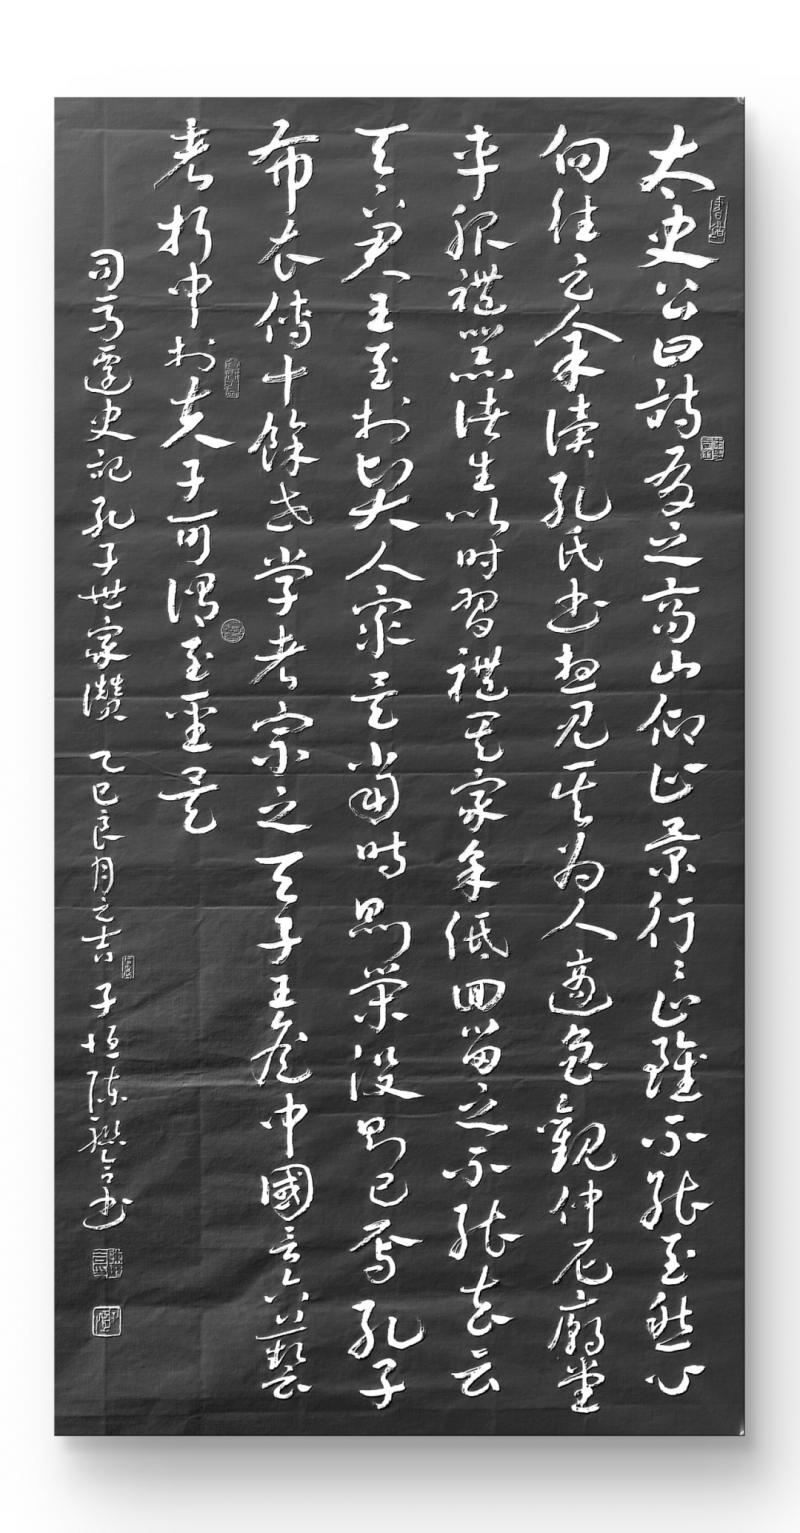 太史公曰詩有之高山仰止景行行止雖不能至然心
向往之余讀孔氏书想见其为人適鲁觀仲尼廟堂
车服禮器諸生以时習禮其家余低回留之不能去云
天下君王至於賢人眾矣當时则荣没则已焉孔子
布衣傳十餘世学者宗之天子王侯中國言六藝
者折中於夫子可谓至聖矣
司马遷史記孔子世家讚 乙巳良月之吉 子恒陈书